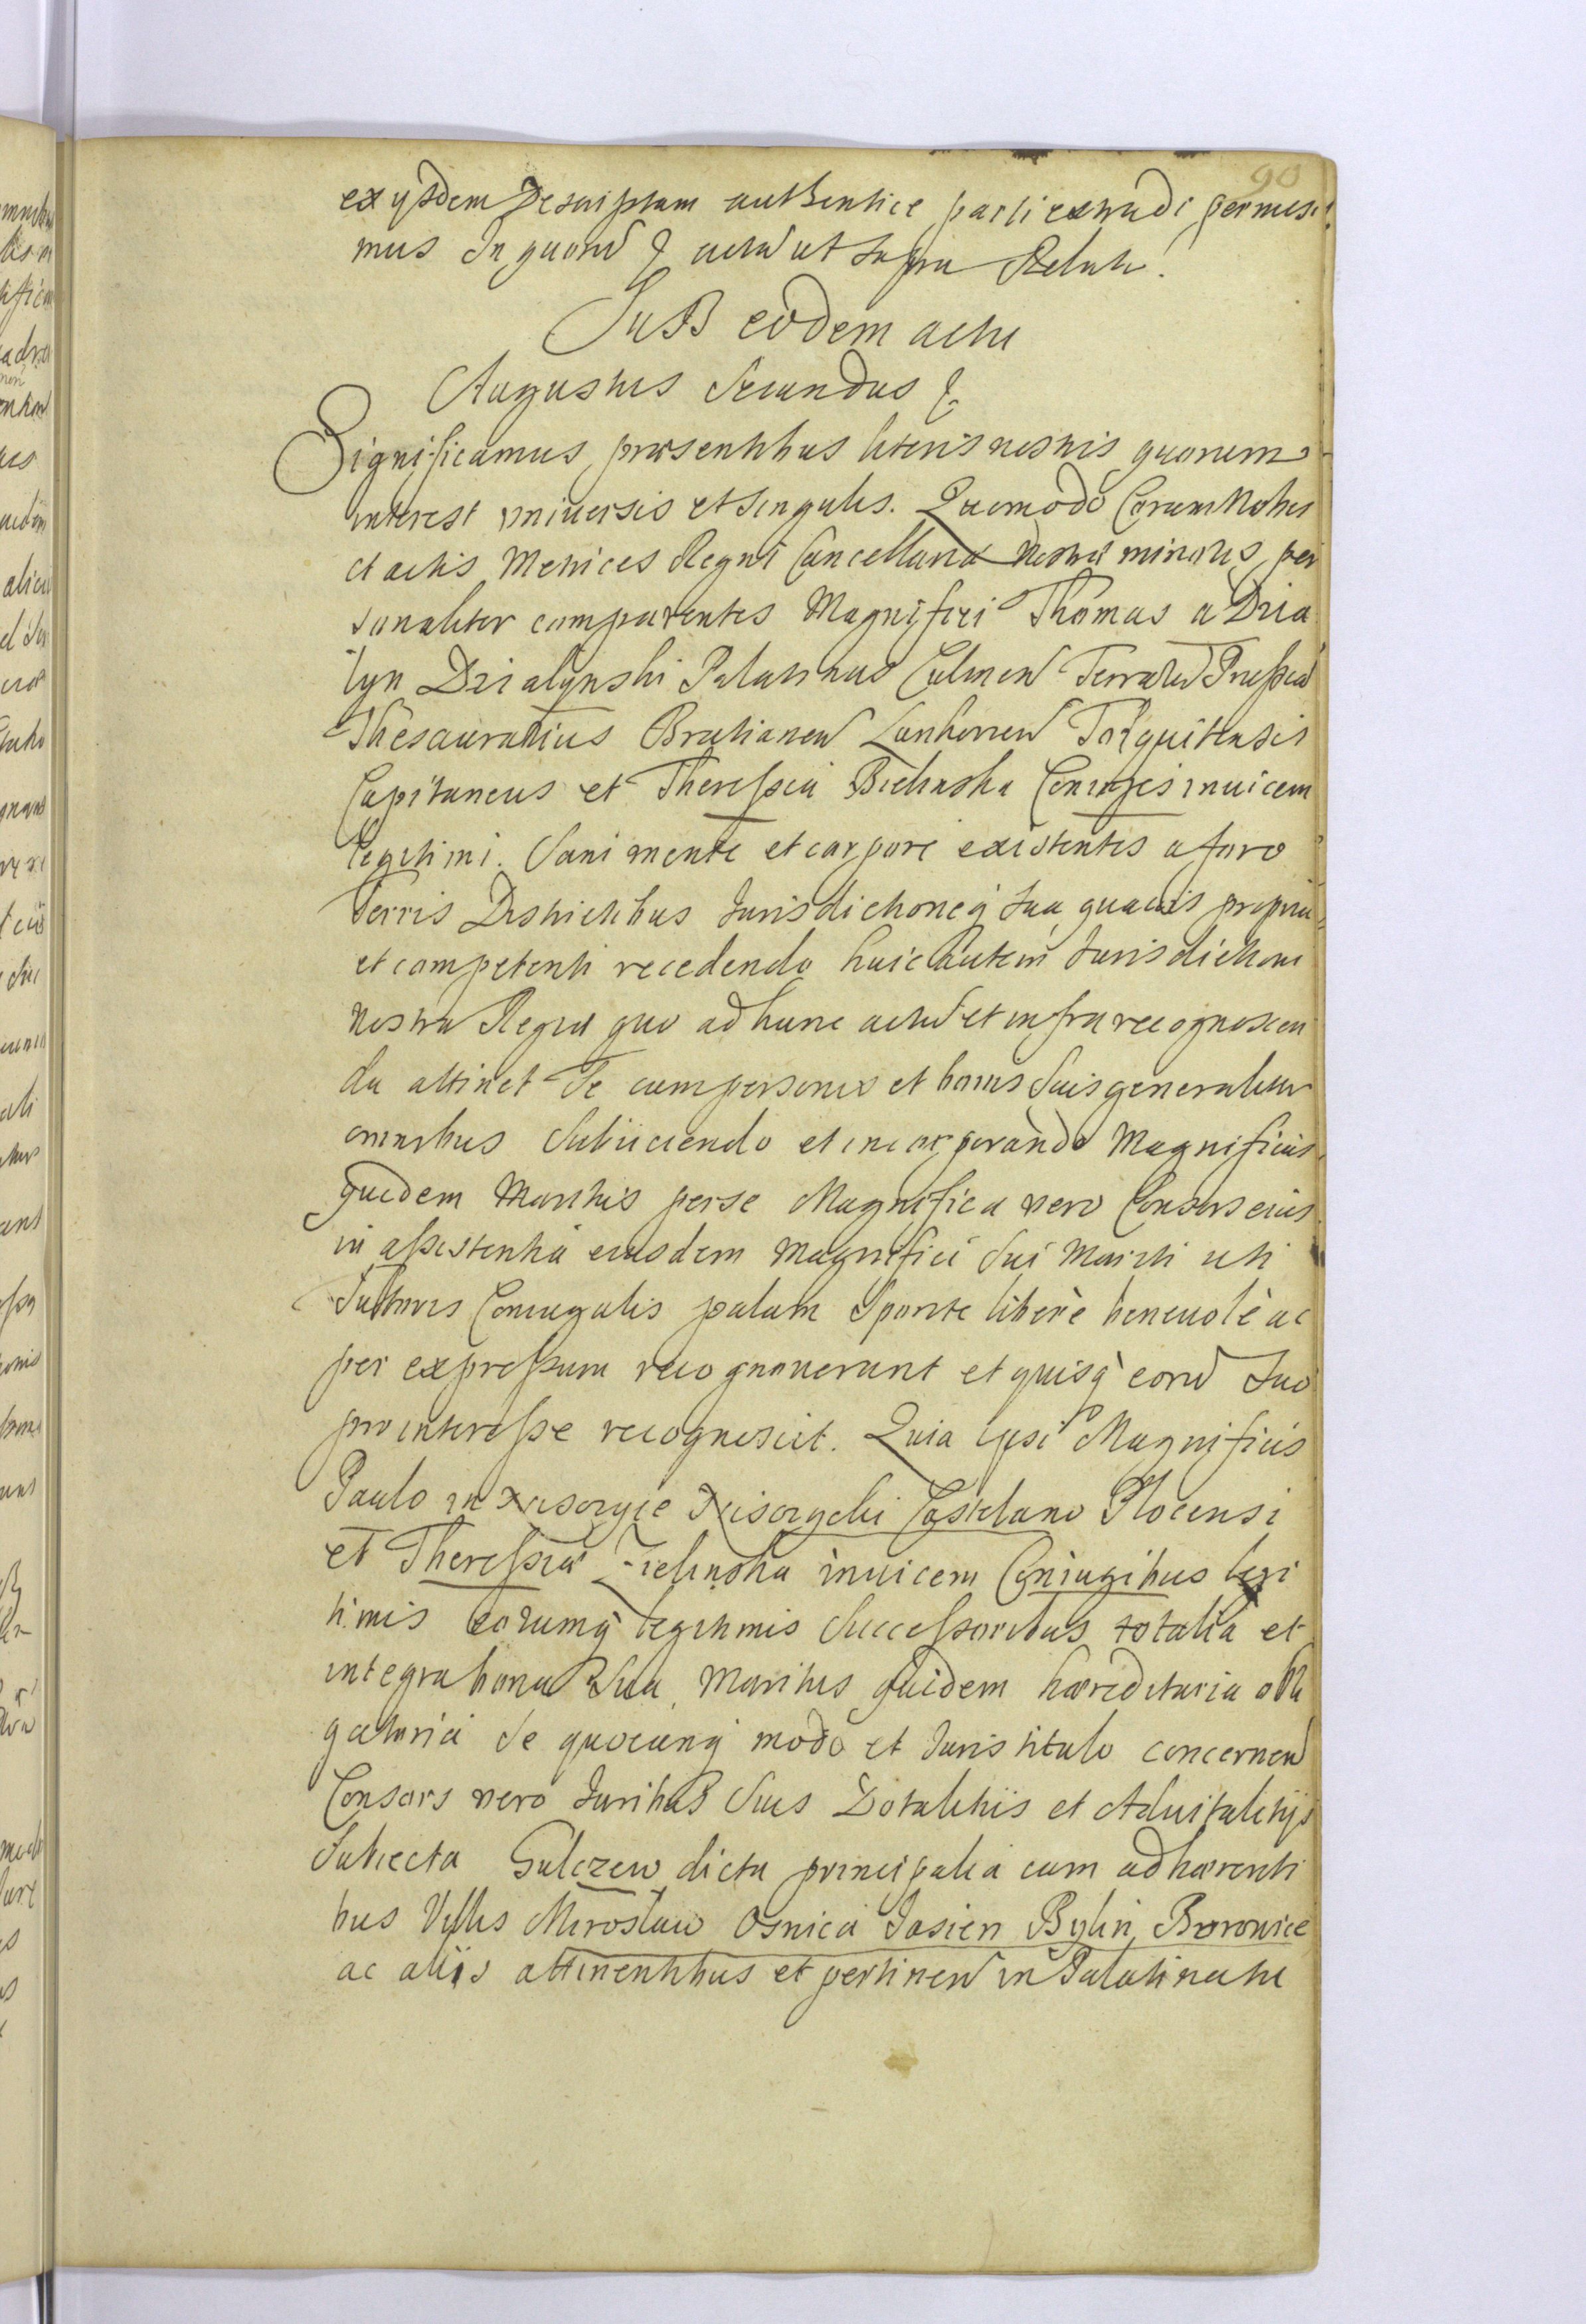 90
ex ijsdem Descriptam authentice parti extradi permisi
mus In quorū & actū ut supra Relati.
SuB eodem actu
Augustus Secundus &
Significamus præsentibus literis nostris quorum
interest vniuersis et singulis. Quomodo Coram Nobis
et actis Metrices Regni Cancellariæ Nostræ minoris per
sonaliter comparentes Magnifici Thomas a Dzia
lyn Dzialynski Palatinus Culmen Terrarū Prussiæ
Thesaurarius Bratianen Lankoren
Capitaneus et Theressia Bielinska Coniuges inuicem
legitimi. Sani mente et corpore existentes a foro
Terris Districtibus Jurisdictioneq́ sua quauis propria
et competenti recedendo huic autem Jurisdictioni
Nostræ Regiæ quo ad hunc actū et infra recognoscen
da attinet Se cum personis et bonis Suis generaliter
omnibus Subiiciendo et incorporando Magnificus
quidem Maritus per se Magnifica vero Consors eius
in assistentia eiusdem Magnifici Sui Mariti uti
Tutoris Coniugalis palam Sponte libere beneuole ac
per expressum recognouerunt et quisq́ eorū suo
pro interesse recognoscit. Quia ipsi Magnificis
Paulo in Castelano Plocensi
et Theressiæ Zielinska inuicem Coniugibus legi
timis eorumq́ legitimis Successoribus totalia et
integra bona Sua Maritus quidem hæreditaria obli
gatoria Se quocunq́ modo et Juris titulo concernen
Consors vero Juribus Suis Dotalitiis et Aduitalitijs
Subiecta Gulczew dicta principalia cum adhærenti
bus Villis Mirosław Osnica Jasien Bylin Boronice
ac aliis attinentibus et pertinen in Palatinatu